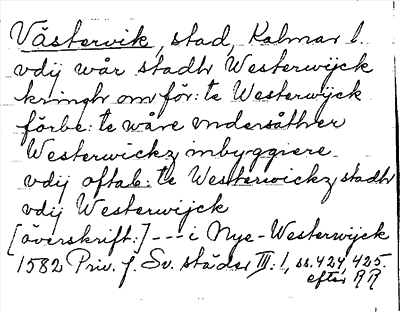 Västervik, stad, Kalmar l.
vdij wår stadh Westerwijck
kringh om för: te Westerwijck
förbe: te wåre vndersåther
Westerwickz inbyggiere
vdij oftab: te Westerwickz stadh
vdij Westerwijck
[överskrift:] --- i Nye-Westerwijck
1582 Priv. f. Sv. städer III: 1, ss. 424, 425.
efter RR